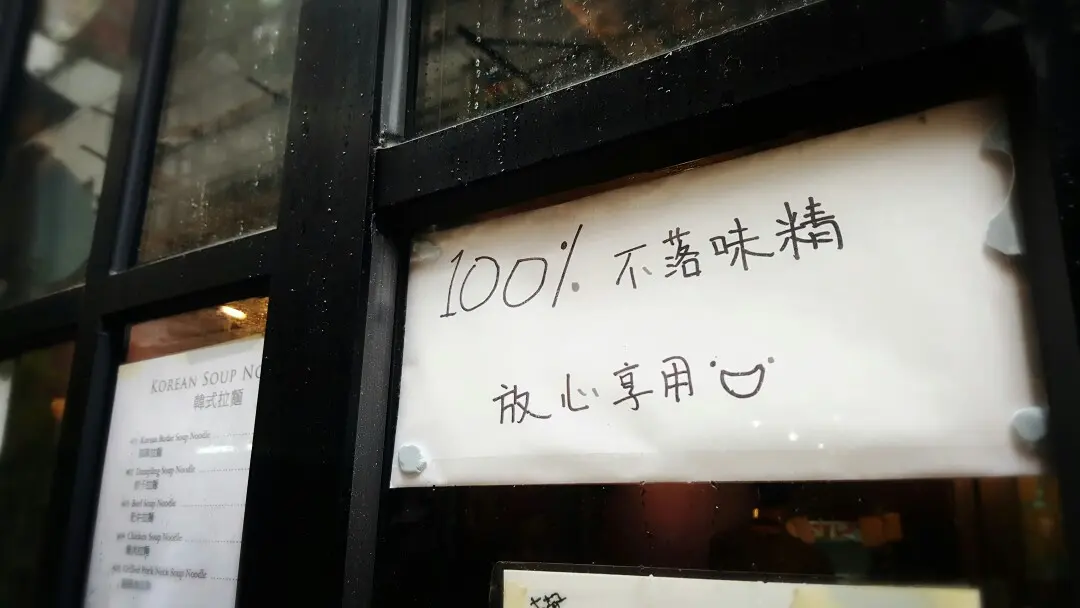 100% 不落味精
放心享用
KOREAN SOUP NO
韓式拉麵
Korean Budae Soup Noodle
Dumpling Soup Noodle
餃子拉麵
Beef Soup Noodle
肥牛拉麵
Chicken Soup Noodle
雞肉拉麵
Grilled Pork Neck Soup Noodle